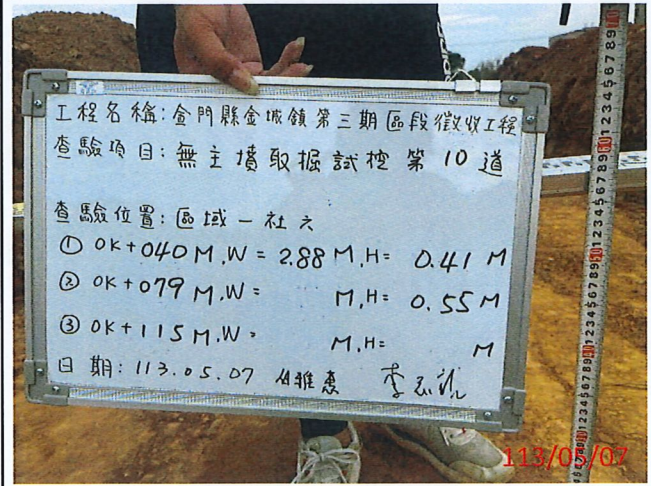 工程名稱:金門縣金城鎮第三期區段徵收工程
查驗項目:無主墳取掘試挖 第10道
查驗位置:區域一社六
① 0K+040M,W= 2.88 M,H= 0.41 M
② 0K+079M,W= M,H= 0.55 M
③ 0K+115M,W= M,H= M
日期:113.05.07 雅惠 李
113/05/07